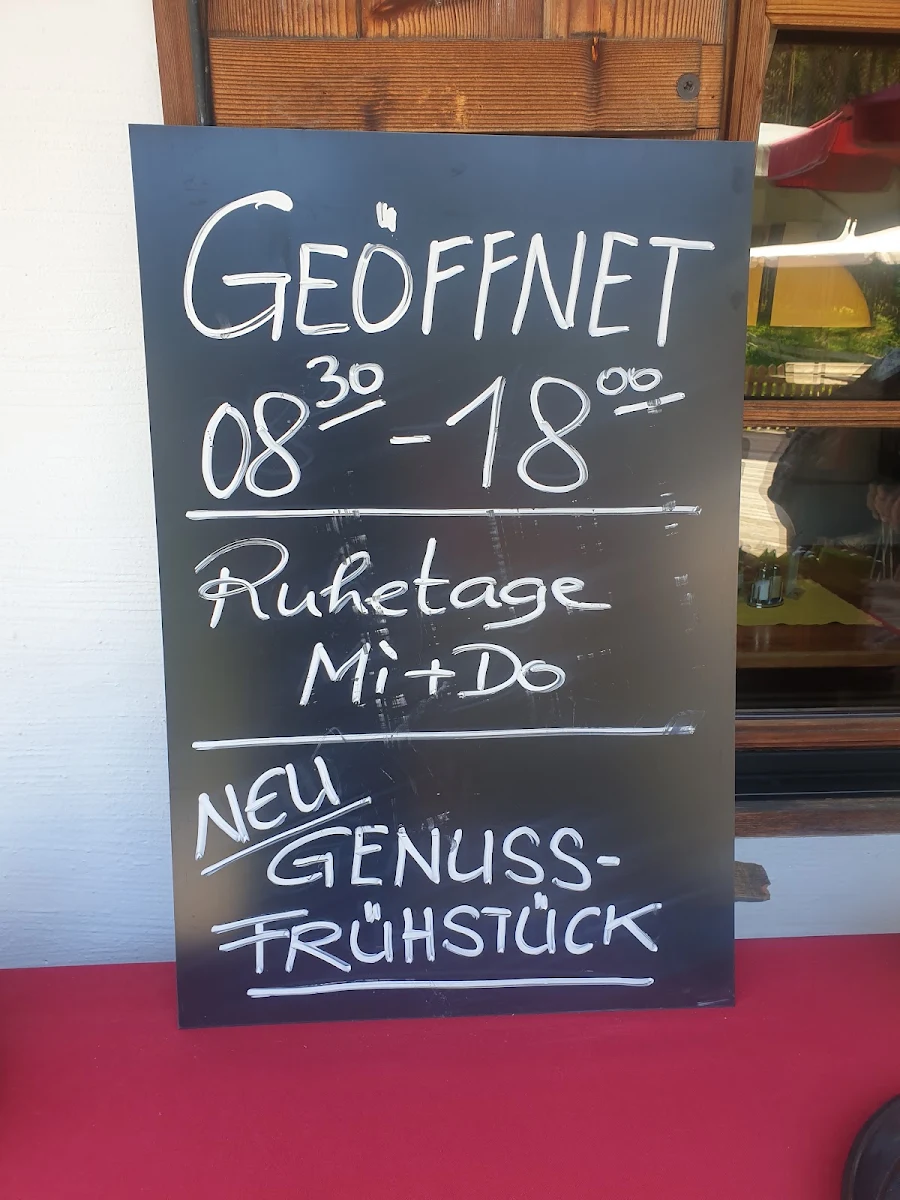 GEÖFFNET
08³⁰ - 18⁰⁰
Ruhetage
Mi + Do
NEU
GENUSS-
FRÜHSTÜCK